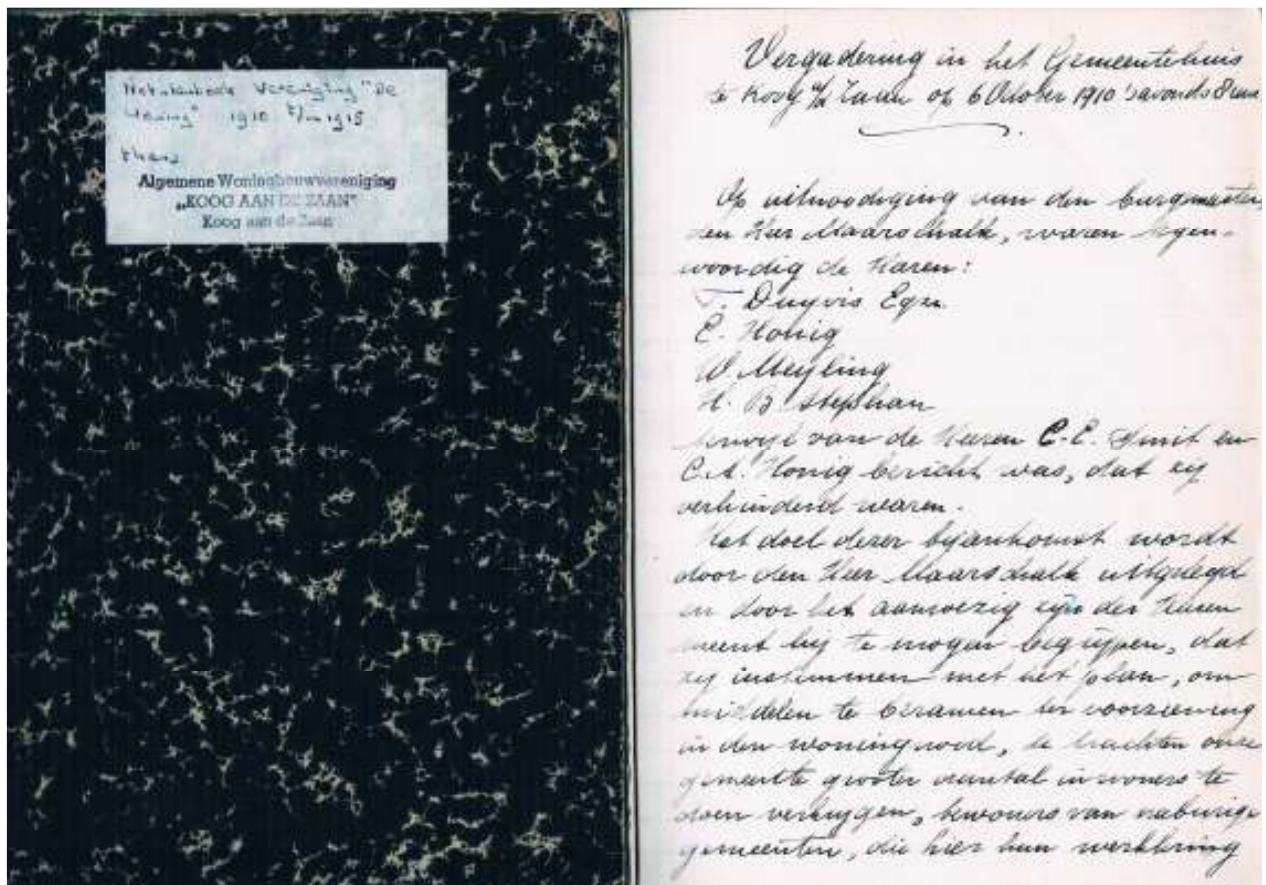 Notulenboek Vereniging "De
Woning" 1910 t/m 1915
thans
Algemene Woningbouwvereniging
„KOOG AAN DE ZAAN”
Koog aan de Zaan
Vergadering in het Gemeentehuis
te Koog a/d Zaan op 6 October 1910 's avonds 8 uur
Op uitnoodiging van den burgemeester,
den Heer Maarschalk, waren tegen-
woordig de Heeren:
T. Duyvis Egzn.
E. Honig
W. Meyling
H. B. Stephan
terwijl van de Heeren C. E. Smit en
C. A. Honig bericht was, dat zij
verhinderd waren.
Het doel dezer bijeenkomst wordt
door den Heer Maarschalk uitgelegd
en door het aanwezig zijn der Heeren
meent hij te mogen begrijpen, dat
zij instemmen met het plan, om
middelen te beramen ter voorziening
in den woningnood, te trachten onze
gemeente grooter aantal inwoners te
doen verkrijgen, bewoners van naburige
gemeenten, die hier hun werkkring